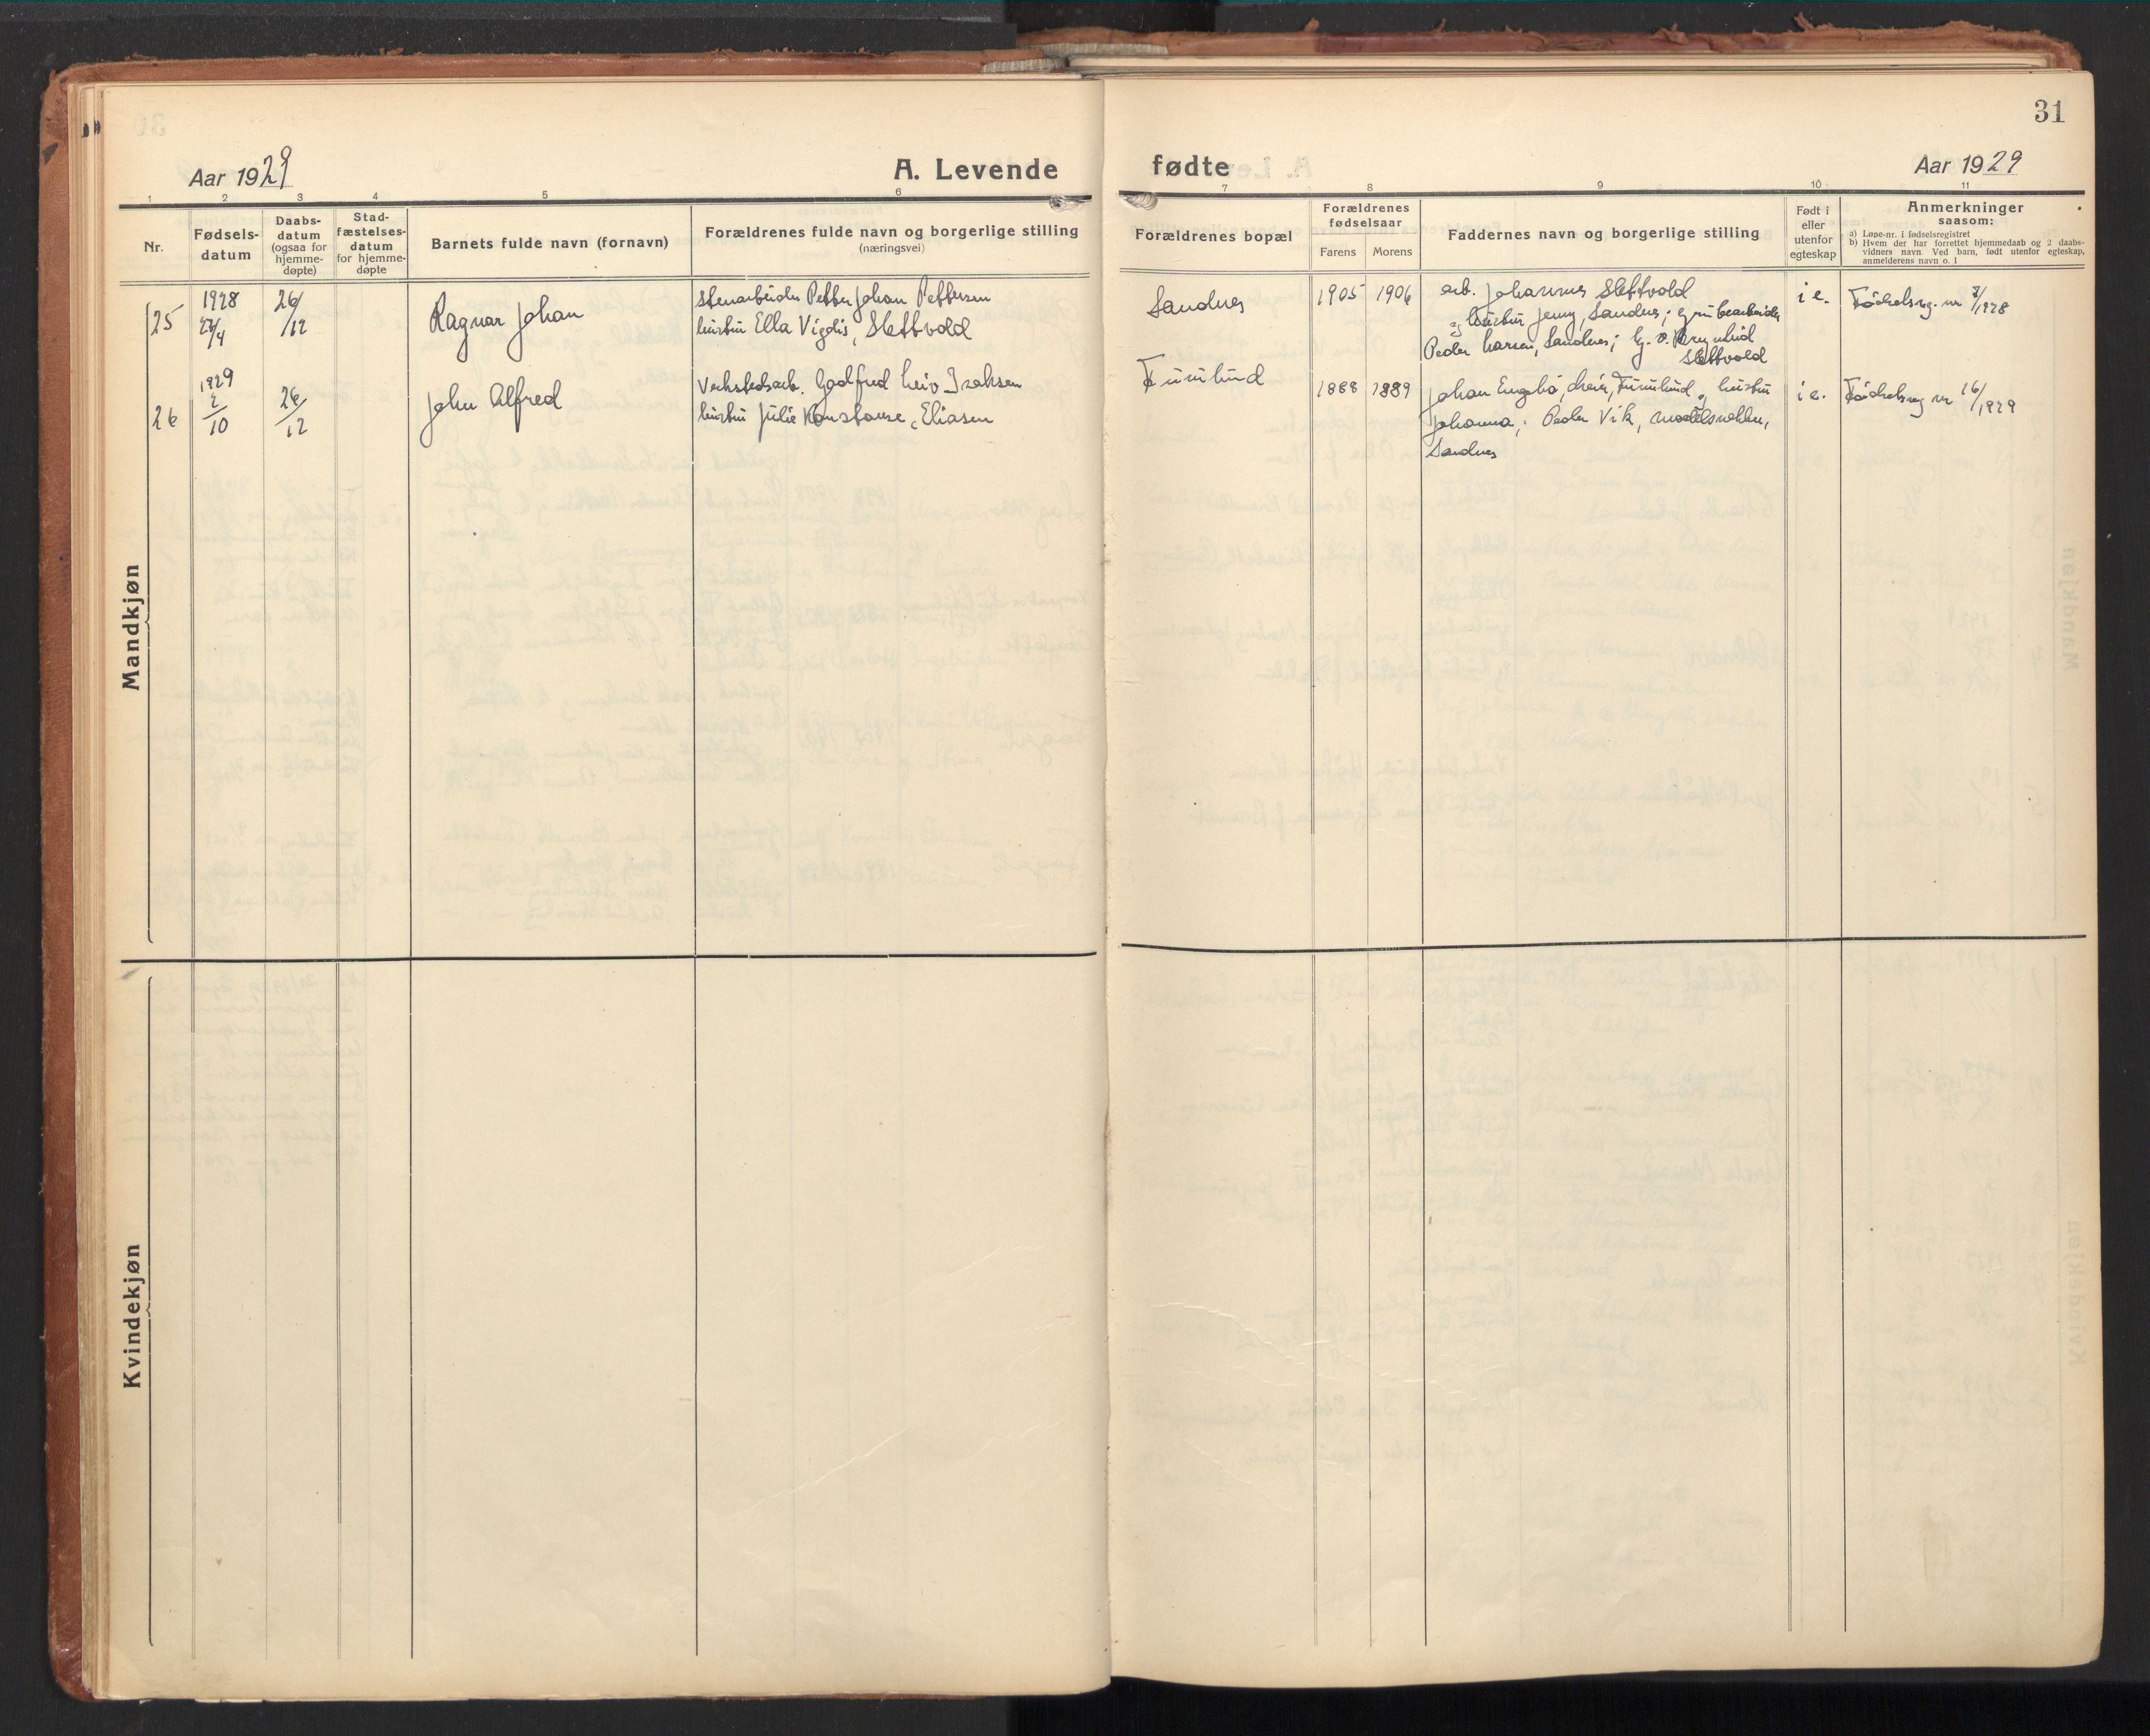 31
Aar 1929
A. Levende
fødte
Aar 1929
1 2 3 4 5 6 7 8 9 10 11
Nr.
Fødsels-
datum
Daabs-
datum
(ogsaa for
hjemme-
døpte)
Stad-
fæstelses-
datum
for hjemme-
døpte
Barnets fulde navn (fornavn)
Forældrenes fulde navn og borgerlige stilling
(næringsvei)
Forældrenes bopæl
Forældrenes
fødselsaar
Farens Morens
Faddernes navn og borgerlige stilling
Født i
eller
utenfor
egteskap
Anmerkninger
saasom:
a) Løpe-nr. i fødselsregistret
b) Hvem der har forrettet hjemmedaab og 2 daabs-
vidners navn. Ved barn, født utenfor egteskap,
anmelderens navn o. l
Mandkjøn
25
1928
27/4
26/12
Ragnar Johan
Stenarbeider Petter Johan Pettersen
hustru Ella Vigdis, Slettvold
Sandnes
1905 1906
arb. Johannes Slettvold
og hustru Jenny, Sandnes; grubearbeider
Peder Larsen, Sandnes; Brynhild
Slettvold
i e.
Fødselsreg. nr 7/1928
26
1929
2/10
26/12
John Alfred
Verkstedsarb. Godfred Leiv Isaksen
hustru Julie Konstanse, Eliasen
Furulund
1888 1889
Johan Engbø, Furulund og hustru
Johanna; Peder Vik,
Sandnes
i e.
Fødselsreg nr 16/1929
Kvindekjøn